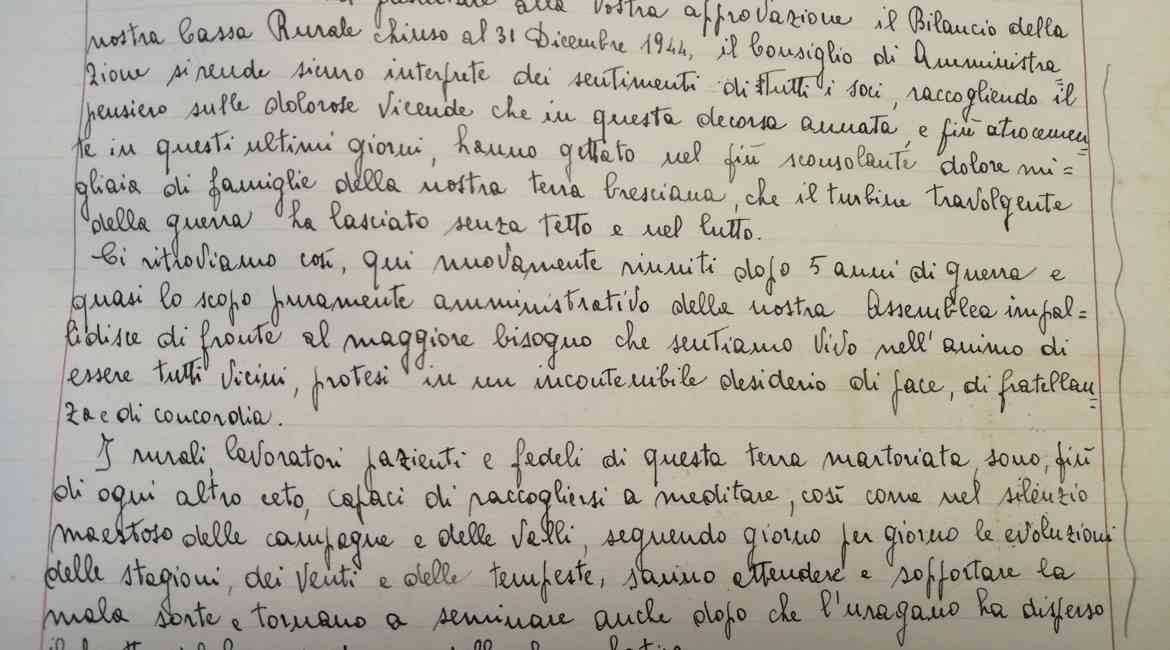 presentare alla Vostra approvazione il Bilancio della
nostra Cassa Rurale chiuso al 31 Dicembre 1944, il Consiglio di Amministra
zione si rende sicuro interprete dei sentimenti di tutti i soci, raccogliendo il
pensiero sulle dolorose vicende che in questa decorsa annata, e più atrocemen=
te in questi ultimi giorni, hanno gettato nel più sconsolante dolore mi=
gliaia di famiglie della nostra terra bresciana, che il turbine travolgente
della guerra ha lasciato senza tetto e nel lutto.
Ci ritroviamo così, qui nuovamente riuniti dopo 5 anni di guerra e
quasi lo scopo puramente amministrativo della nostra Assemblea impal=
lidisce di fronte al maggiore bisogno che sentiamo vivo nell'animo di
essere tutti vicini, protesi in un incontenibile desiderio di pace, di fratellan=
za e di concordia.
I rurali, lavoratori pazienti e fedeli di questa terra martoriata, sono, più
di ogni altro ceto, capaci di raccogliersi a meditare, così come nel silenzio
maestoso delle campagne e delle valli, seguendo giorno per giorno le evoluzioni
delle stagioni, dei venti e delle tempeste, sanno attendere e sopportare la
mala sorte e tornano a seminare anche dopo che l'uragano ha disperso